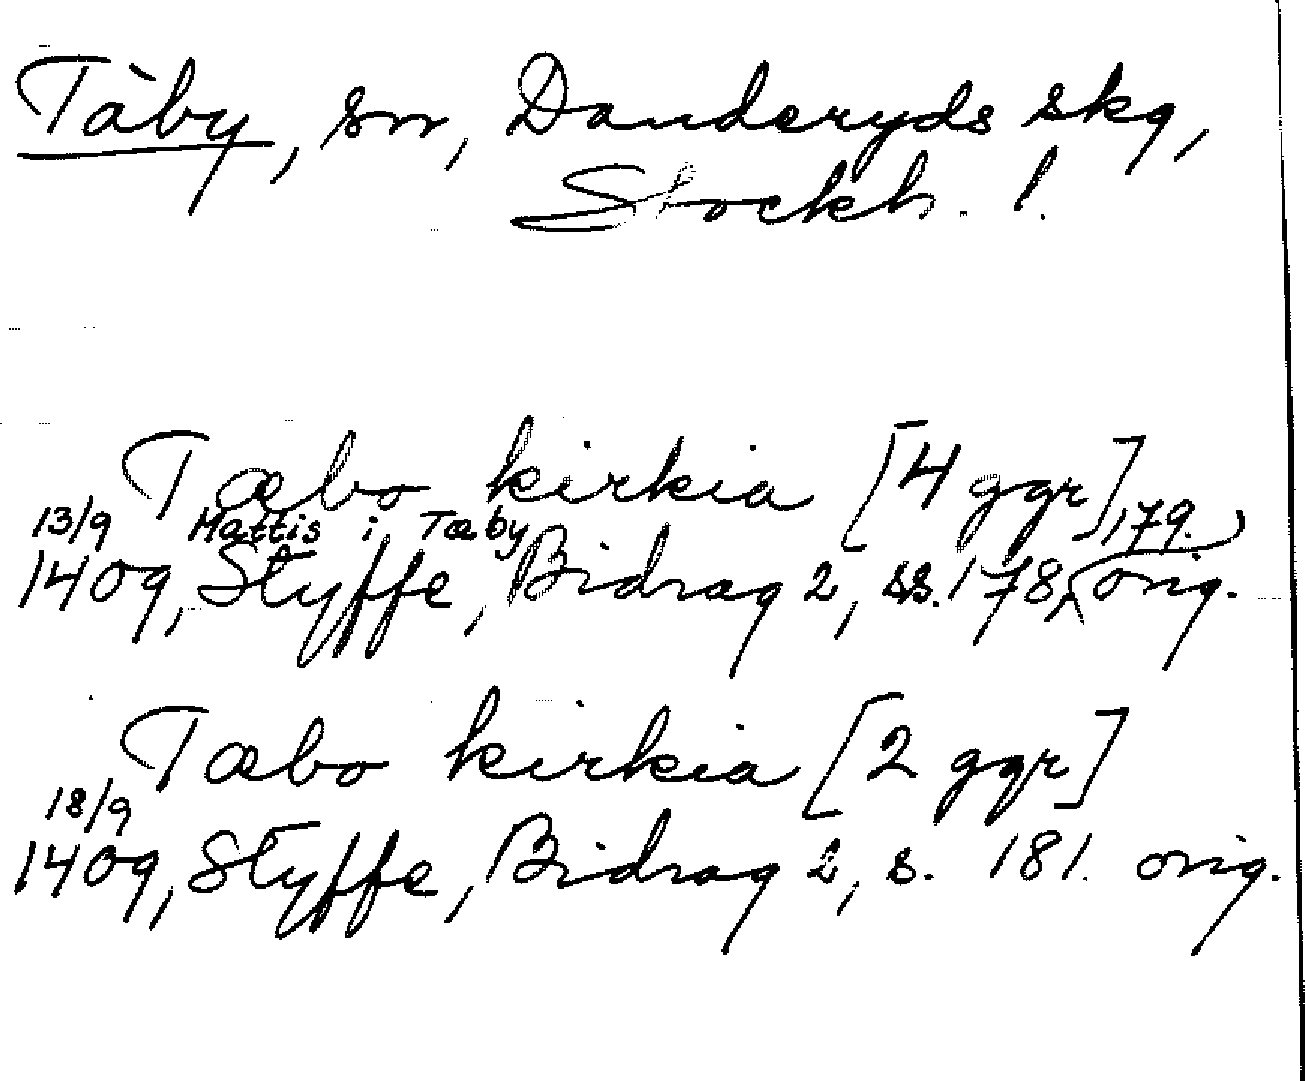 Täby, sn, Danderyds skg,
Stockh. l.
Tæbo kirkia [4 ggr]
13/9 Mattis i Tæby
1409, Styffe, Bidrag 2, ss. 178, 179. orig.
Tæbo kirkia [2 ggr]
18/9
1409, Styffe, Bidrag 2, s. 181. orig.